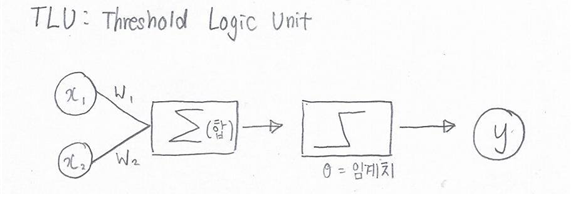 TLU: Threshold Logic Unit
x₁ W₁
∑(합)
x₂ W₂
y
θ = 임계치